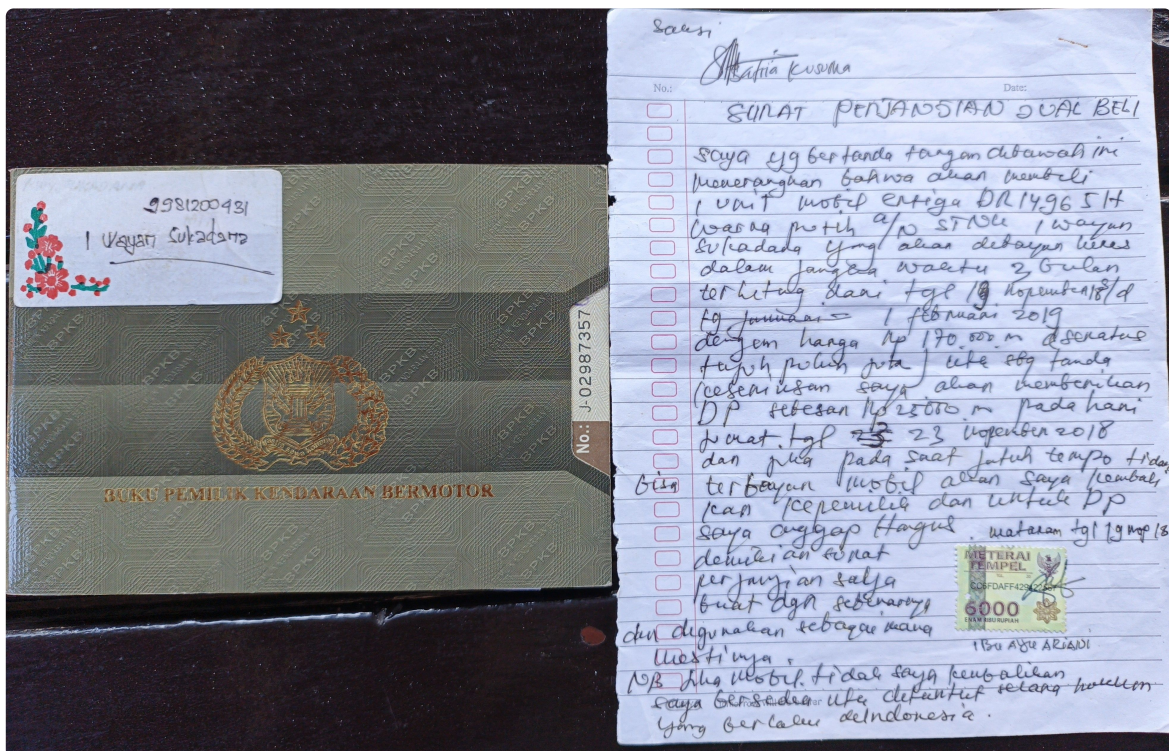 9981200431
I Wayan Sukadana
BPKB
No.: J-02987357
BUKU PEMILIK KENDARAAN BERMOTOR
Saksi
Satria Kusuma
No.:
Date:
SURAT PERJANJIAN JUAL BELI
saya yg bertanda tangan dibawah ini
menerangkan bahwa akan membeli
1 unit mobil ertiga DR 1496 SH
warna putih a/n STNK I wayan
sukadana yang akan dibayar lunas
dalam jangka waktu 2 bulan
terhitung dari tgl 19 nopember 18 s/d
tg januari - 1 februari 2019
dengan harga Rp 170.000.000 (seratus
tujuh puluh juta) utk sbg tanda
keseriusan saya akan memberikan
DP sebesar Rp 25.000.000 pada hari
jumat tgl 23 nopember 2018
dan jika pada saat jatuh tempo tidak
bisa terbayar mobil akan saya kembali
kan kepemilik dan untuk DP
saya anggap Hangus. mataram tgl 19 nop 18
demikian surat
perjanjian saya
buat dgn sebenarnya
dan digunakan sebagai mana
mestinya.
METERAI
TEMPEL
6000
ENAM RIBU RUPIAH
IBU AYU ARIANI
NB Jika mobil tidak saya kembalikan
saya bersedia utk dituntut hukum
yang berlaku diIndonesia.